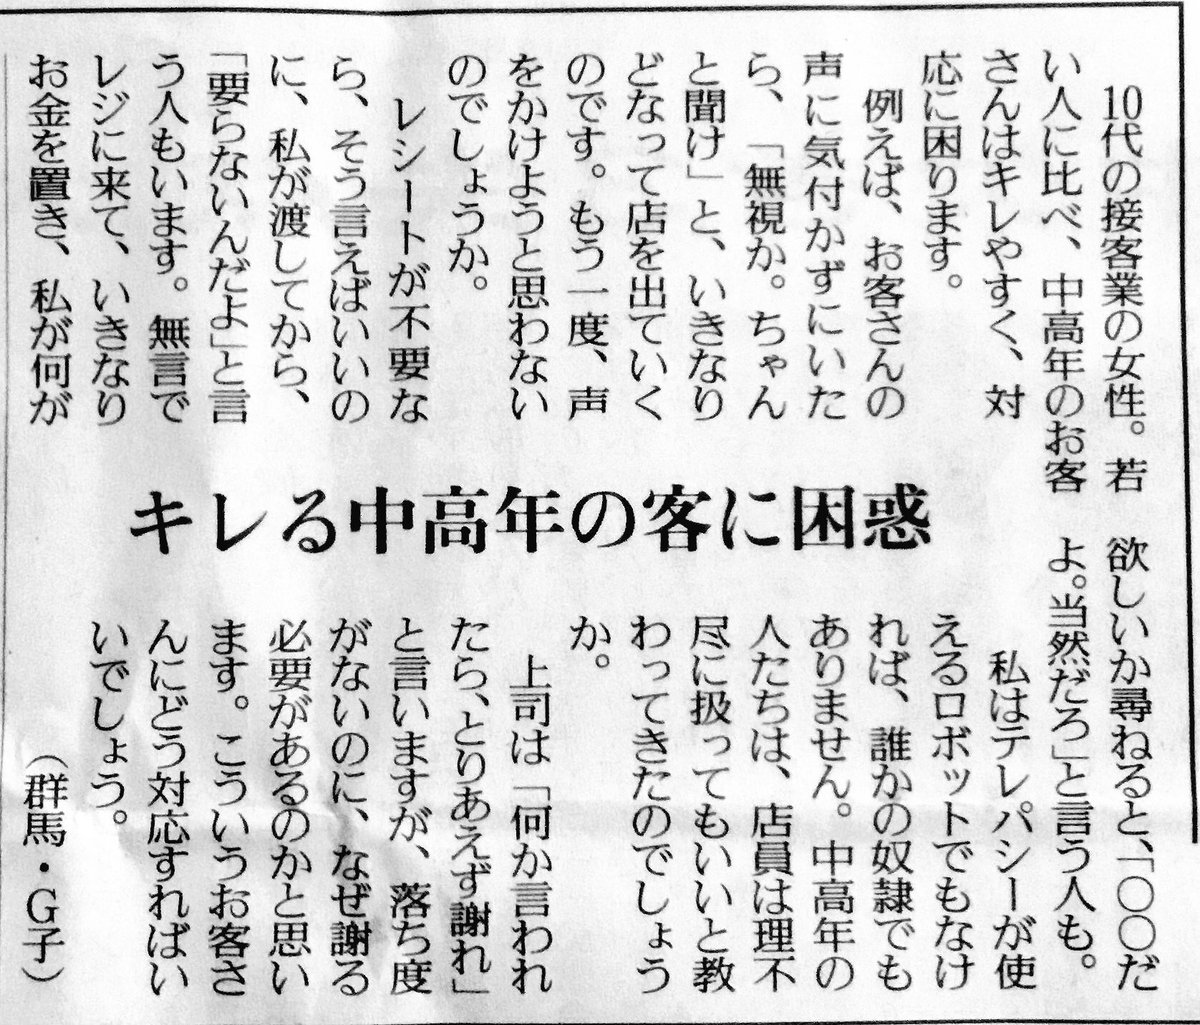 キレる中高年の客に困惑
　10代の接客業の女性。若
い人に比べ、中高年のお客
さんはキレやすく、対
応に困ります。
　例えば、お客さんの
声に気付かずにいた
ら、「無視か。ちゃん
と聞け」と、いきなり
どなって店を出ていく
のです。もう一度、声
をかけようと思わない
のでしょうか。
　レシートが不要な
ら、そう言えばいいの
に、私が渡してから、
「要らないんだよ」と言
う人もいます。無言で
レジに来て、いきなり
お金を置き、私が何が
欲しいか尋ねると、「〇〇だ
よ。当然だろ」と言う人も。
　私はテレパシーが使
えるロボットでもなけ
れば、誰かの奴隷でも
ありません。中高年の
人たちは、店員は理不
尽に扱ってもいいと教
わってきたのでしょう
か。
　上司は「何か言われ
たら、とりあえず謝れ」
と言いますが、落ち度
がないのに、なぜ謝る
必要があるのかと思い
ます。こういうお客さ
んにどう対応すればい
いでしょう。
（群馬・G子）